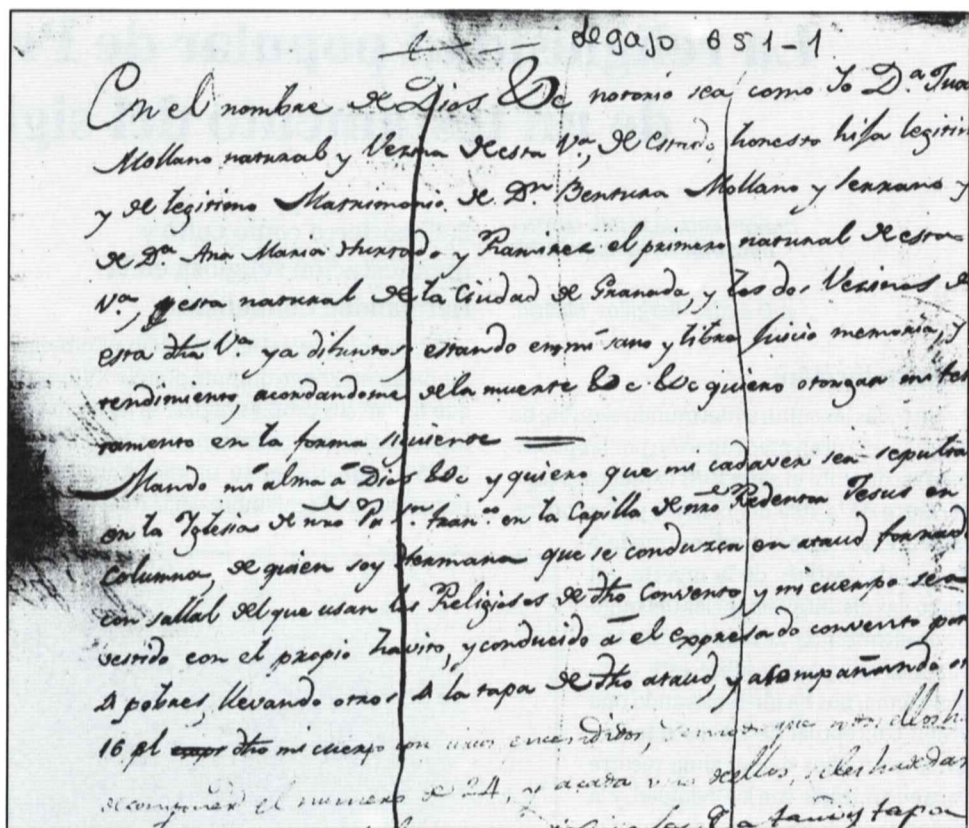 Legajo 651-1
En el nombre de Dios &c notorio sea como Yo D.ª Jua
Mollano natural y Vezina de esta V.ª, de Estado honesto hija legitim
y de legitimo Matrimonio de D.n Bentura Mollano y Serrano y
de D.ª Ana Maria Hurtado y Ramirez el primero natural de esta
V.ª, y esta natural de la Ciudad de Granada, y los dos Vezinos de
esta dha V.ª ya difuntos estando en mi sano y libre Juicio memoria, y
tendimiento acordandome de la muerte &c &c quiero otorgar mi tes
tamento en la forma siguiente
Mando mi alma a Dios &c y quiero que mi cadaver sea sepulta
en la Yglesia de nro Pe Sn Fran.co en la Capilla de nro Redentor Jesus en
Columna, de quien soy Hermana que se conduzca en ataud forrado
con sallal del que usan los Religiosos de dho Convento y mi cuerpo sea
vestido con el propio havito, y conducido a el expresado convento por
4 pobres, llevando otros 4 la tapa de dho ataud, y acompañando ot
16 el dho mi cuerpo con encendidos, que
acompañar el numero de 24, y a cada uno de ellos, se les ha de dar
ataud y tapa